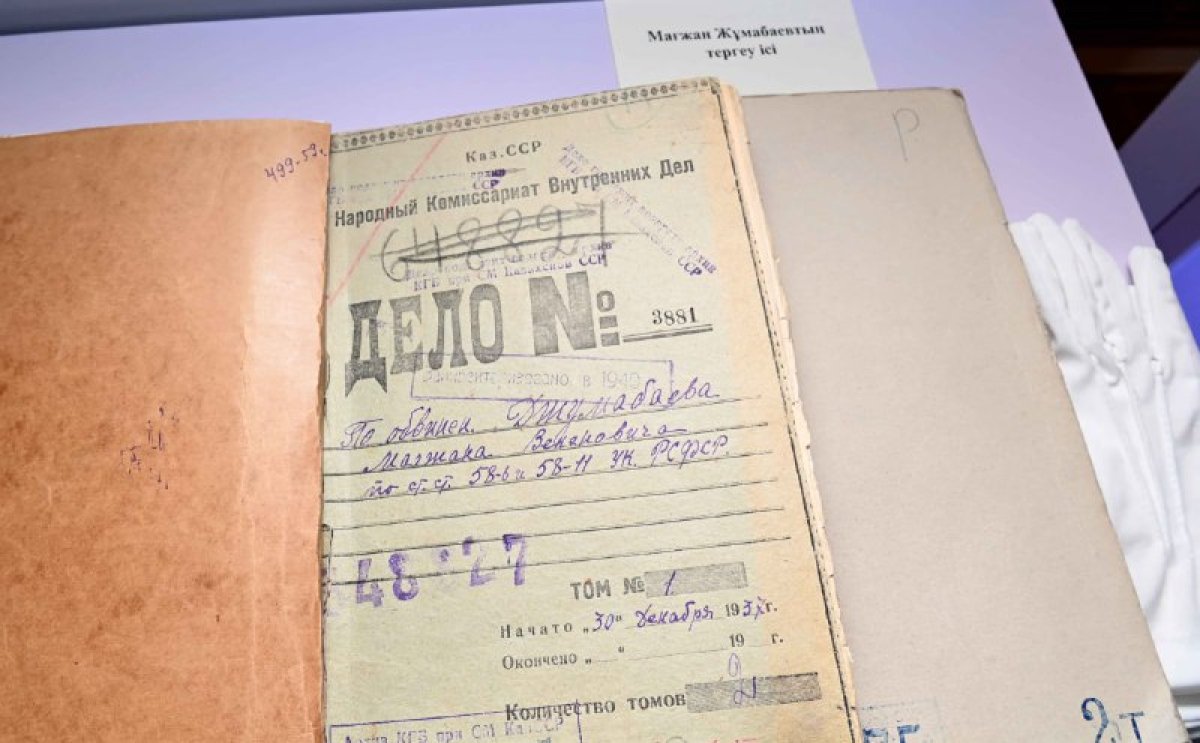 Мағжан Жұмабаевтың
тергеу ісі
499-59г.
Р
Каз.ССР
Народный Комиссариат Внутренних Дел
КГБ при СМ Казахской ССР
ДЕЛО № 3881
в 1940
По обвинен. Джумабаева
Магжана Бекеновича
по ст.ст. 58-6 и 58-11 УК. РСФСР.
ТОМ № 1
Начато „30" Декабря 1937г.
Окончено „ " 19 г.
Количество томов 2
Архив КГБ при СМ КазССР
2т